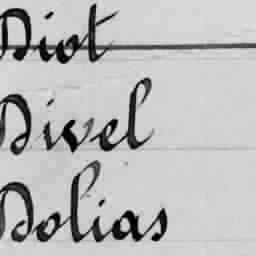 Diot
Divel
Dolias